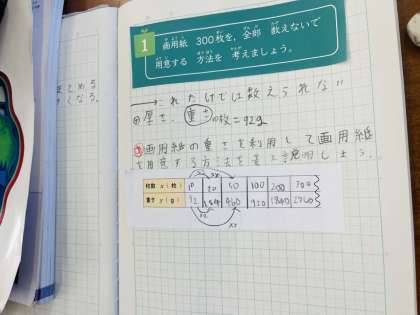 1 画用紙 300枚を、全部 数えないで
用意する 方法を 考えましょう。
これだけでは数えられない
厚さ、重さ 10枚=92g
画用紙の重さを利用して画用紙
を用意する方法を 説明しよう。
枚数 x(枚) 10 20 50 100 200 300
重さ y(g) 92 184 460 920 1840 2760